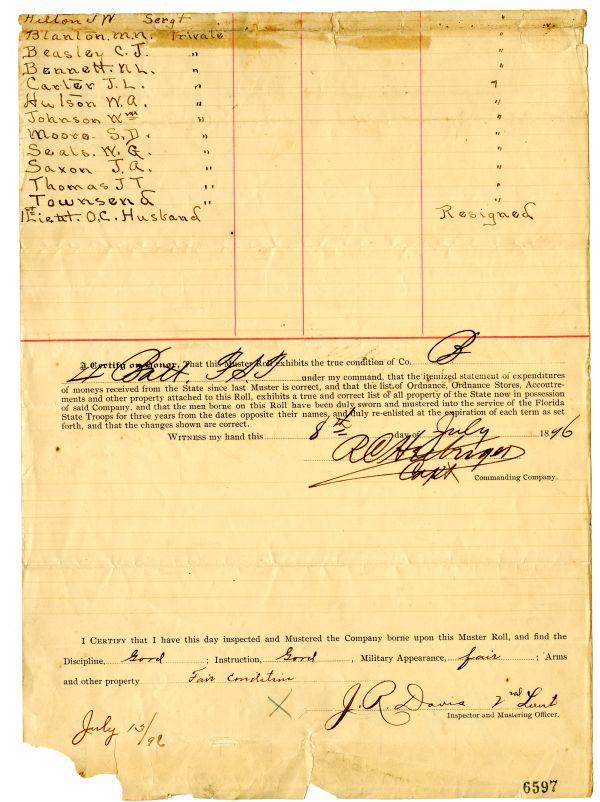 Hilton J W Sergt "
Blanton. M.N. Private "
Beasley C. J. " "
Bennett. N.L. " "
Carter J. L. " "
Hulson W. A. " "
Johnson Wm " "
Moore S. D. " "
Seals. W. G. " "
Saxon J. A. " "
Thomas J T " "
Townsend " "
1st Lieut. O.C. Husband Resigned
I Certify on Honor, That this Muster Roll exhibits the true condition of Co. B
4 Batt. F.S.T under my command, that the itemized statement of expenditures
of moneys received from the State since last Muster is correct, and that the list of Ordnance, Ordnance Stores, Accoutre-
ments and other property attached to this Roll, exhibits a true and correct list of all property of the State now in possession
of said Company, and that the men borne on this Roll have been duly sworn and mustered into the service of the Florida
State Troops for three years from the dates opposite their names, and duly re-enlisted at the expiration of each term as set
forth, and that the changes shown are correct.
Witness my hand this 8th day of July 1896
R C
Capt Commanding Company.
I Certify that I have this day inspected and Mustered the Company borne upon this Muster Roll, and find the
Discipline, Good ; Instruction, Good , Military Appearance, fair ; Arms
and other property Fair Condition
J. R. Davis 2nd Lieut
Inspector and Mustering Officer.
July 13/96
6597